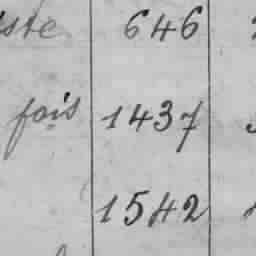 iste 646
fois 1437
1542